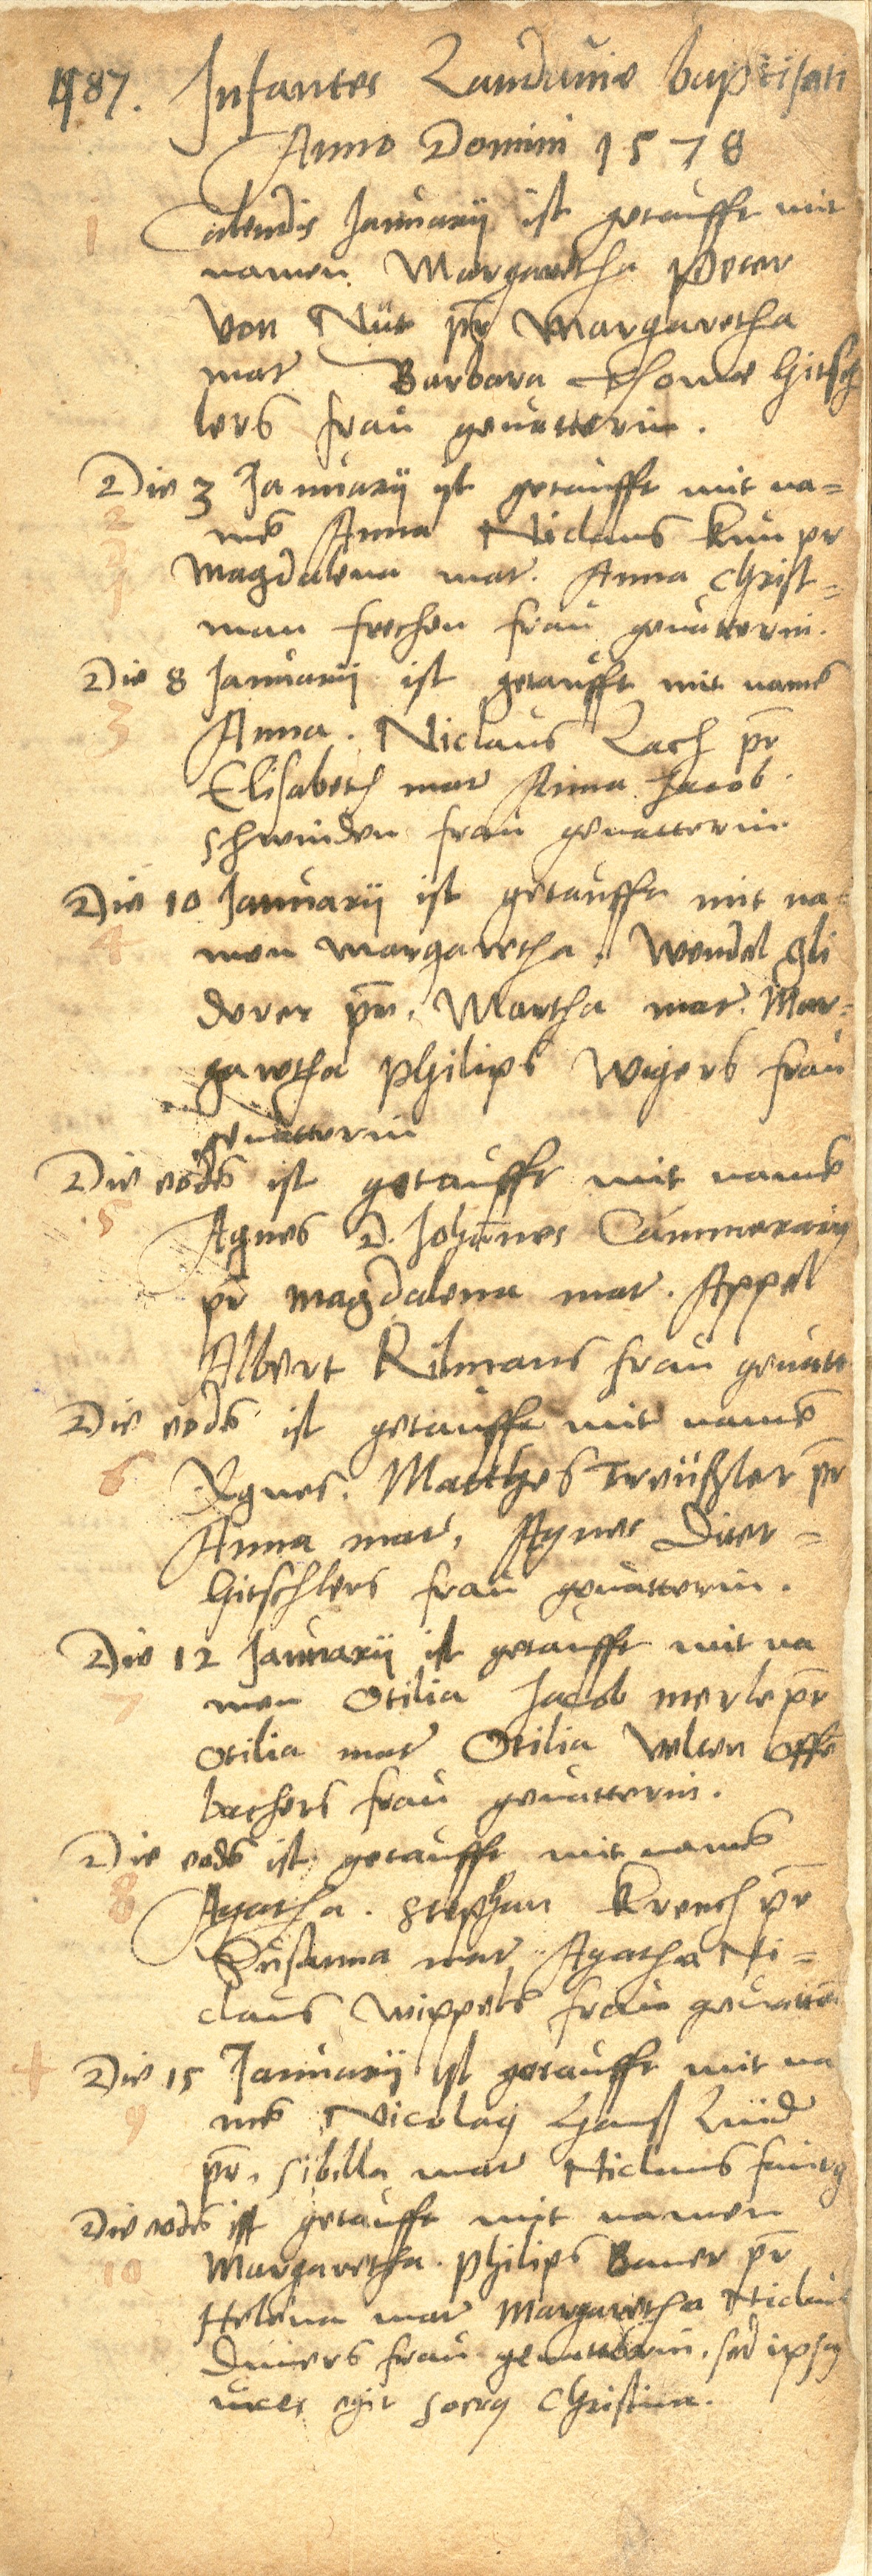 487. Infantes Landauiæ baptisati
Anno Domini 1578
1 Calendis Januarij ist getaufft mit
namen Margaretha Peter
von Nüt pr̄ Margaretha
mat Barbara Thome hitsch
lers frau geuatterin.
Die 3 Januarij ist getaufft mit na=
2 me Anna Niclaus kun pr
Magdalena mat. Anna Christ=
man frechen frau geuatterin.
Die 8 Januarij ist getaufft mit name
3 Anna. Niclaus Lach pr̄
Elisabeth mat Anna Jacob
schwinden frau geuatterin
Die 10 Januarij ist getaufft mit na=
4 men Margaretha. Wendel gli
derer pr̄. Martha mat. Mar=
garetha Philips Wigers frau
geuatterin
Die eode ist getaufft mit name
5 Agnes D. Johānes Cammerarij
pr̄ Magdalena mat. Appel
Albert Rilmans frau geuatt
Die eode ist getaufft mit name
6 Agnes. Matthes Treüßler pr̄
Anna mat, Agnes Diter=
hitschlers frau geuatterin.
Die 12 Januarij ist getaufft mit na
7 men Otilia Jacob merle pr̄
Otilia mat Otilia Velten offe
bachers frau geuatterin.
Die eode ist getaufft mit name
8 Agatha. Stephan Krech pr̄
Susanna mat. Agatha Ni=
claus Wippels frau geuatte
+ Die 15 Januarij ist getaufft mit na
9 me Nicolaij Hanß Lüid
pr̄. Sibilla mat Niclaus
Die eode ist getaufft mit namen
10 Margaretha. Philips Bauer pr̄
Helena mat Margaretha Niclaus
Diuers frau geuatterin. sed ipsiq
uices egit socrq Christina.